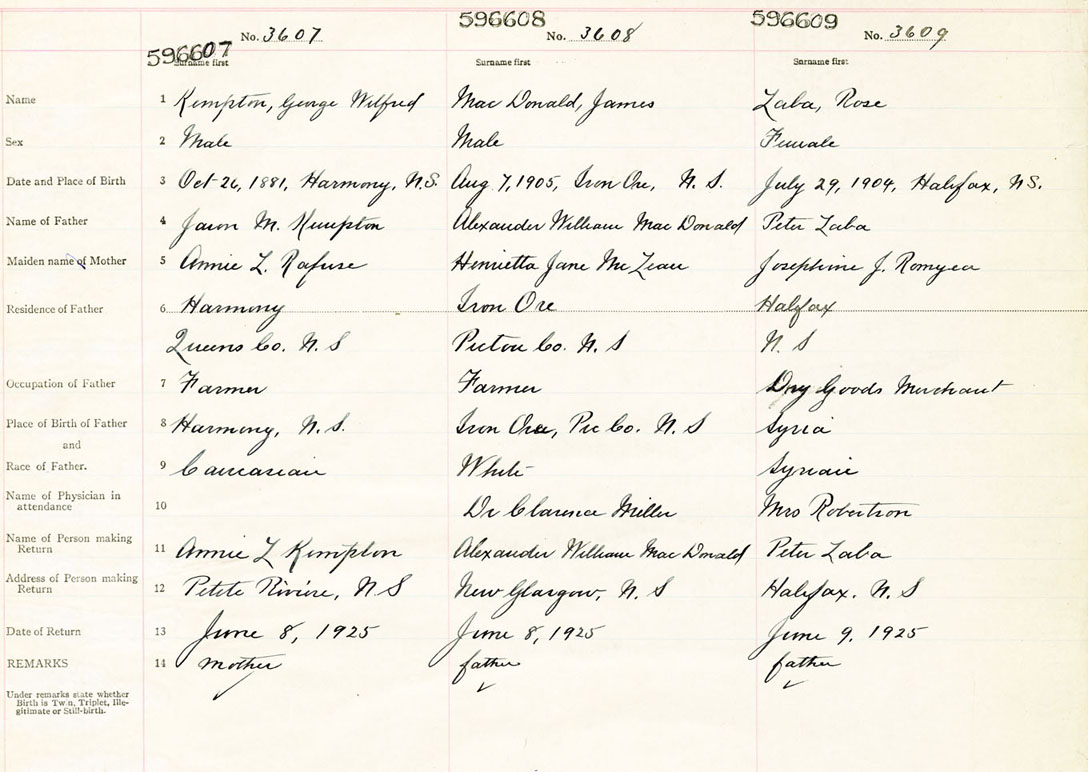 596607 596608 596609
No. 3607 No. 3608 No. 3609
Surname first Surname first Surname first
Name 1 Kempton, George Wilfred Mac Donald, James Zaba, Rose
Sex 2 Male Male Female
Date and Place of Birth 3 Oct 26, 1881, Harmony, N.S. Aug 7, 1905, Iron Ore, N. S. July 29, 1904, Halifax, N.S.
Name of Father 4 Jason M. Kempton Alexander William Mac Donald Peter Zaba
Maiden name of Mother 5 Annie L. Rafuse Henrietta Jane McLean Josephine J. Romyea
Residence of Father 6 Harmony Iron Ore Halifax
Queens Co. N. S Pictou Co. N. S N. S
Occupation of Father 7 Farmer Farmer Dry Goods Merchant
Place of Birth of Father 8 Harmony, N.S. Iron Ore, Pic Co. N. S Syria
and
Race of Father. 9 Caucasian White Syrian
Name of Physician in
attendance 10 Dr Clarence Miller Mrs Robertson
Name of Person making
Return 11 Annie L Kempton Alexander William Mac Donald Peter Zaba
Address of Person making
Return 12 Petite Riviere, N S New Glasgow, N. S Halifax. N. S
Date of Return 13 June 8, 1925 June 8, 1925 June 9, 1925
REMARKS 14 mother father father
Under remarks state whether
Birth is Twin, Triplet, Ille-
gitimate or Still-birth.